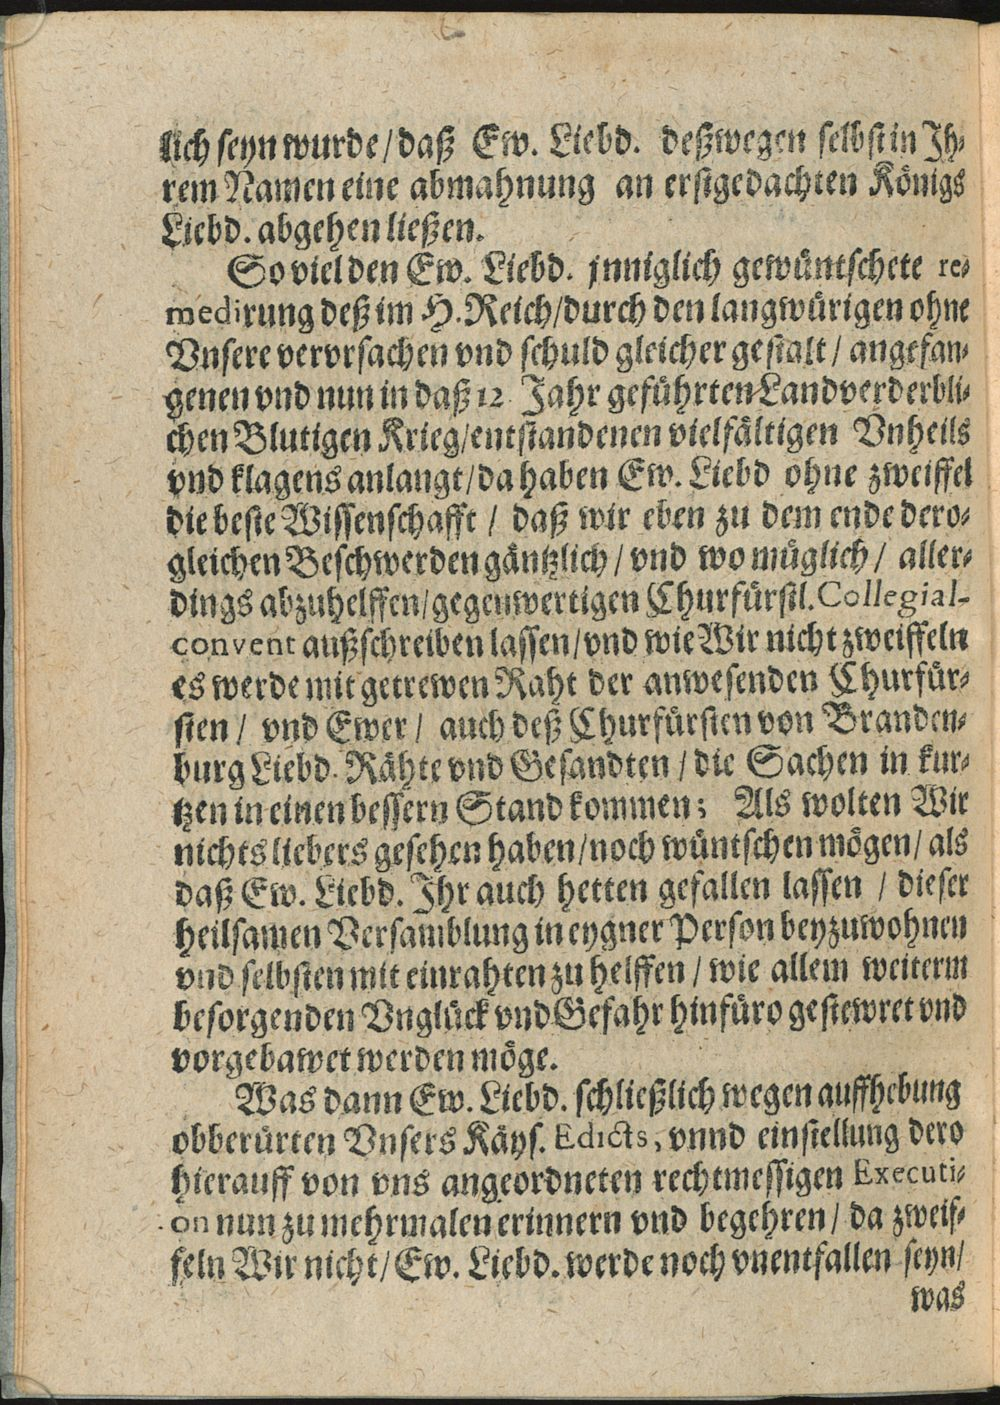 lich seyn wurde/daß Ew. Liebd. deßwegen selbst in Ih-
rem Namen eine abmahnung an erstgedachten Königs
Liebd. abgehen ließen.
So viel den Ew. Liebd. jnniglich gewüntschete re-
medirung deß im H. Reich/durch den langwürigen ohne
Vnsere vervrsachen vnd schuld gleicher gestalt/ angefan-
genen vnd nun in daß 12 Jahr geführten Landverderbli-
chen Blutigen Krieg/entstandenen vielfältigen Vnheils
vnd klagens anlangt/da haben Ew. Liebd ohne zweiffel
die beste Wissenschafft / daß wir eben zu dem ende dero-
gleichen Beschwerden gäntzlich/ vnd wo müglich/ aller-
dings abzuhelffen/gegenwertigen Churfürstl. Collegial-
convent außschreiben lassen/vnd wie Wir nicht zweiffeln
es werde mit getrewen Raht der anwesenden Churfür-
sten/ vnd Ewer/ auch deß Churfürsten von Branden-
burg Liebd. Rähte vnd Gesandten/die Sachen in kur-
tzen in einen bessern Stand kommen; Als wolten Wir
nichts liebers gesehen haben/noch wüntschen mögen/ als
daß Ew. Liebd. Ihr auch hetten gefallen lassen / dieser
heilsamen Versamblung in eygner Person beyzuwohnen
vnd selbsten mit einrahten zu helffen/ wie allem weiterm
besorgenden Vnglück vnd Gefahr hinfüro gestewret vnd
vorgebawet werden möge.
Was dann Ew. Liebd. schließlich wegen auffhebung
obberürten Vnsers Käys. Edicts, vnnd einstellung dero
hierauff von vns angeordneten rechtmessigen Executi-
on nun zu mehrmalen erinnern vnd begehren/ da zweif-
feln Wir nicht/Ew. Liebd. werde noch vnentfallen seyn/
was